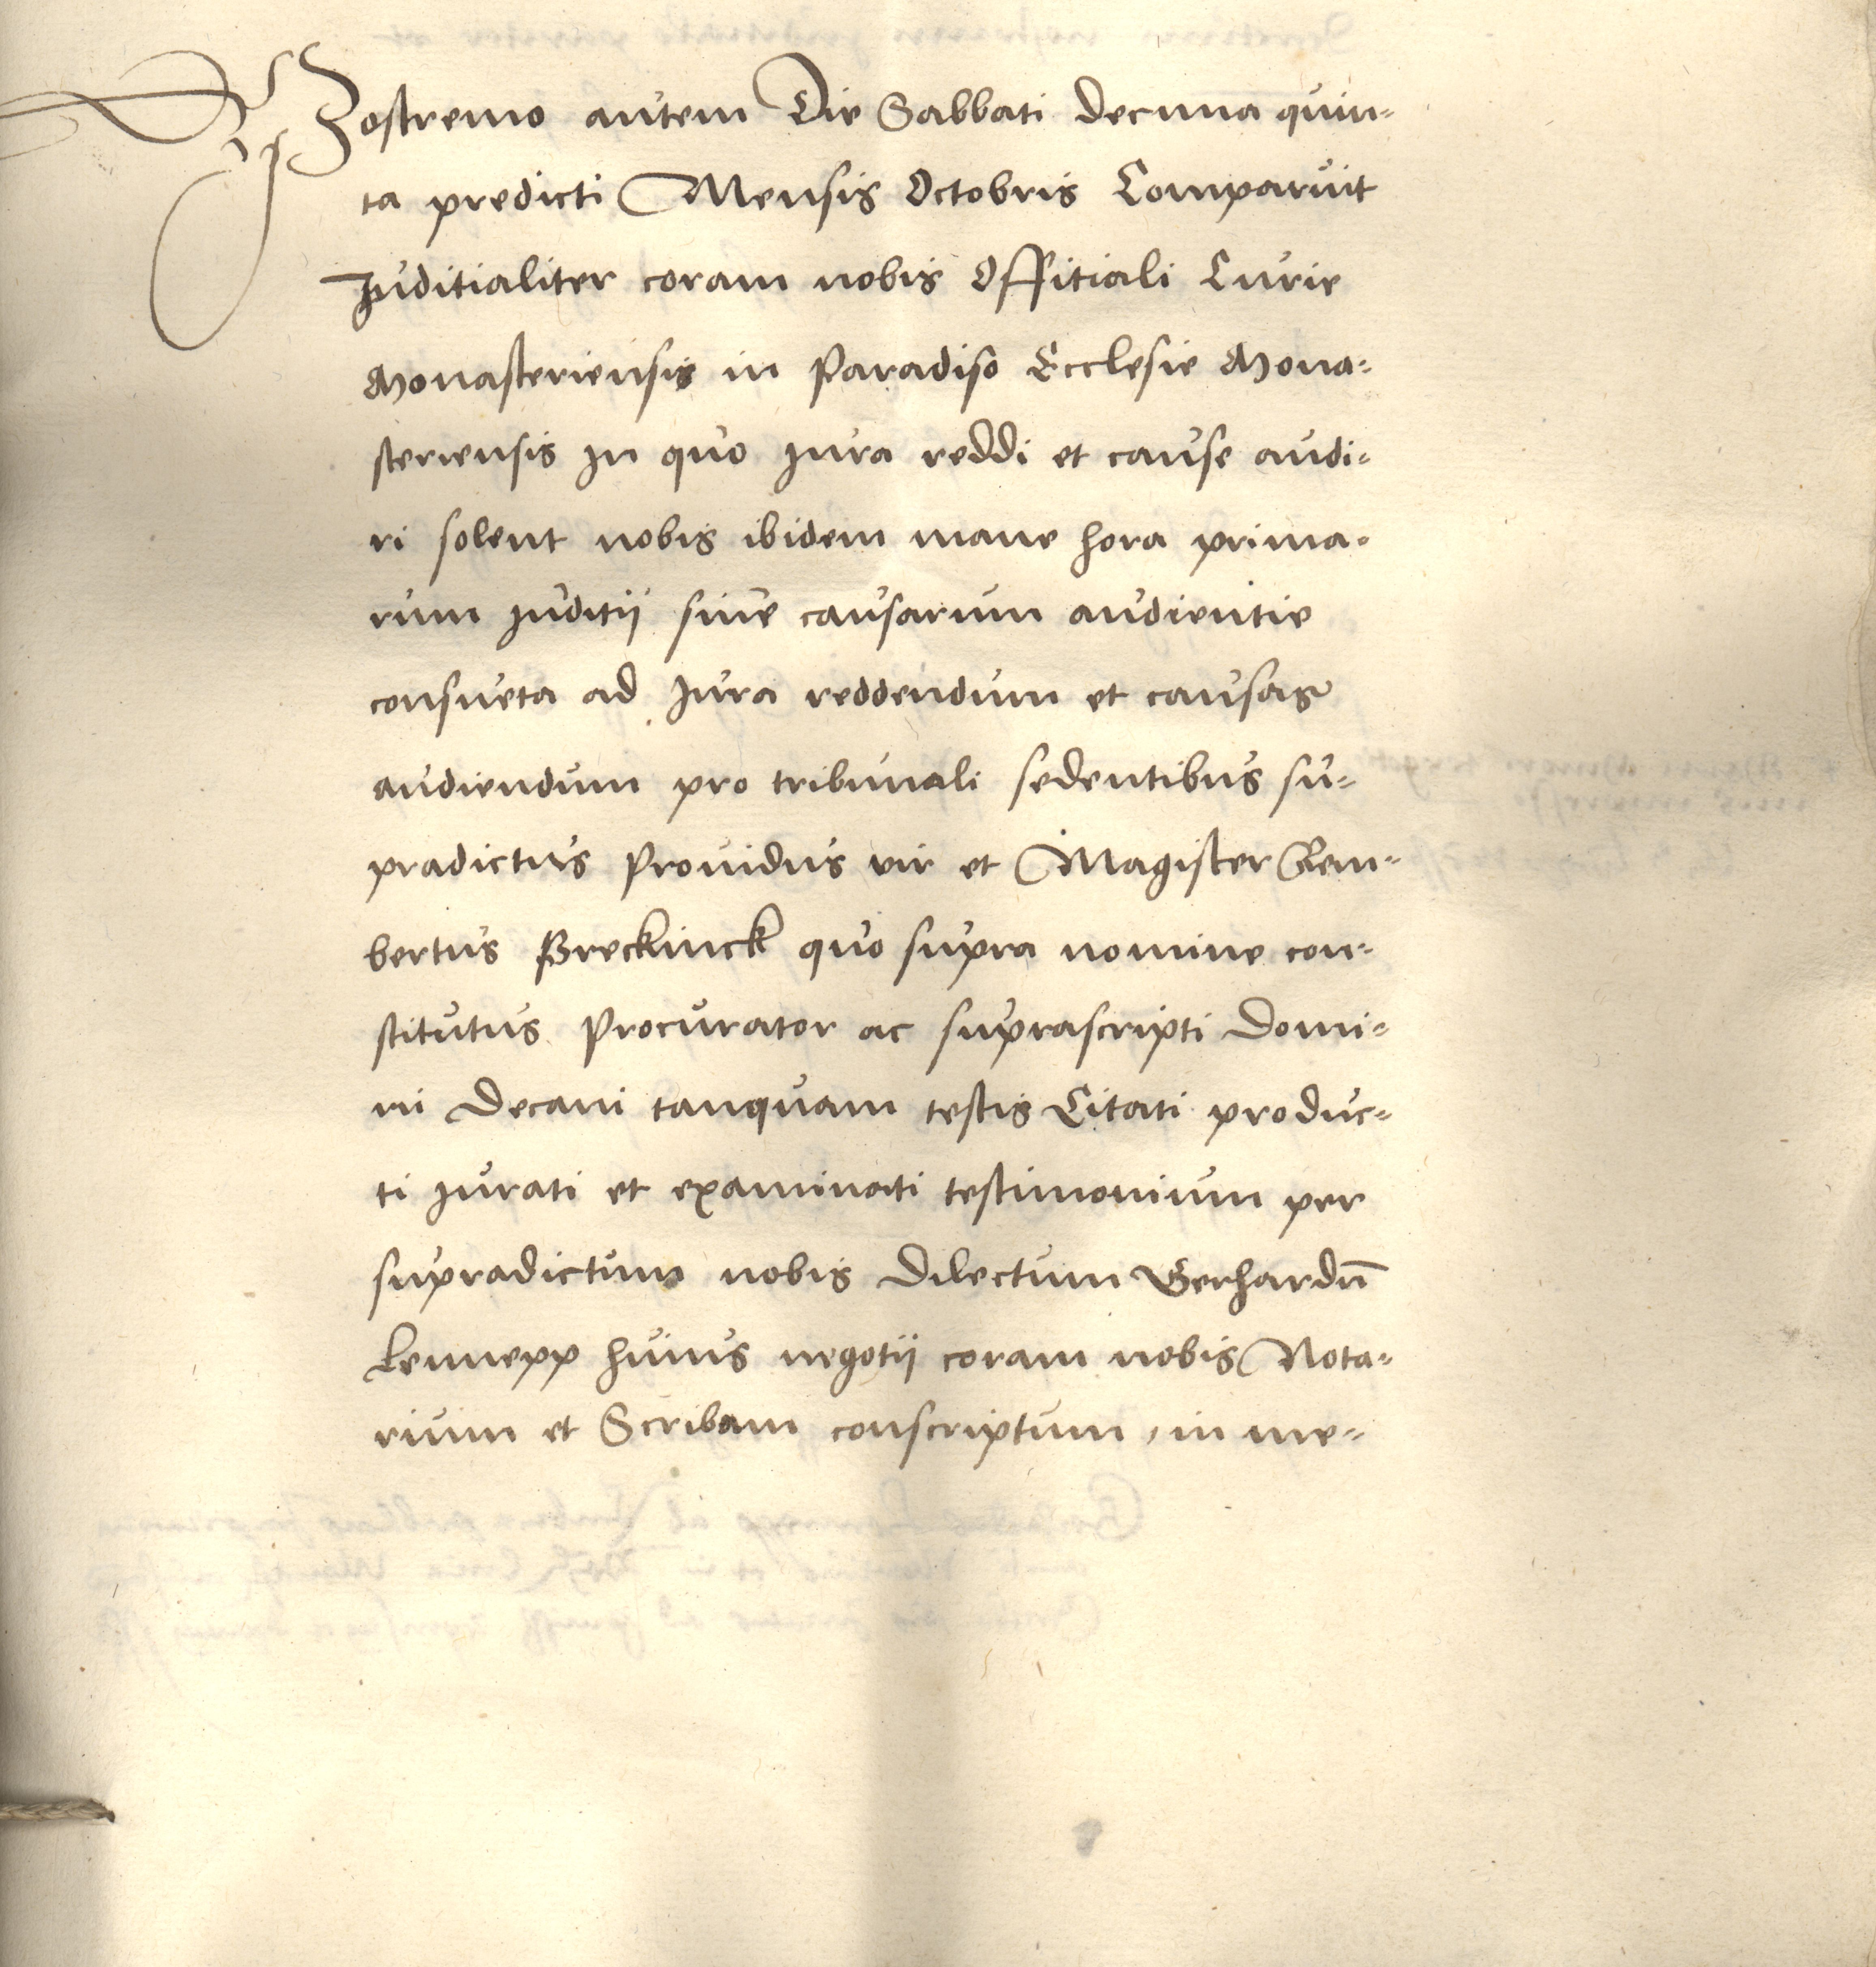 Postremo autem Die Sabbati decima quin-
ta predicti Mensis Octobris Comparuit
Juditialiter coram nobis Offitiali Curie
Monasteriensis in Paradiso Ecclesie Mona-
steriensis in quo Jura reddi et cause audi-
ri solent nobis ibidem mane hora prima-
rum Juditij siue causarum audientie
consueta ad Jura reddendum et causas
audiendum pro tribunali sedentibus su-
pradictus Prouidus vir et Magister Rem-
bertus Breckinck quo supra nomine con-
stitutus Procurator ac suprascripti Domi-
ni Decani tanquam testis Citati produc-
ti Jurati et examinati testimonium per
supradictum nobis Dilectum Gerhardū
Lennepp huius negotij coram nobis Nota-
rium et Scribam conscriptum, in me-